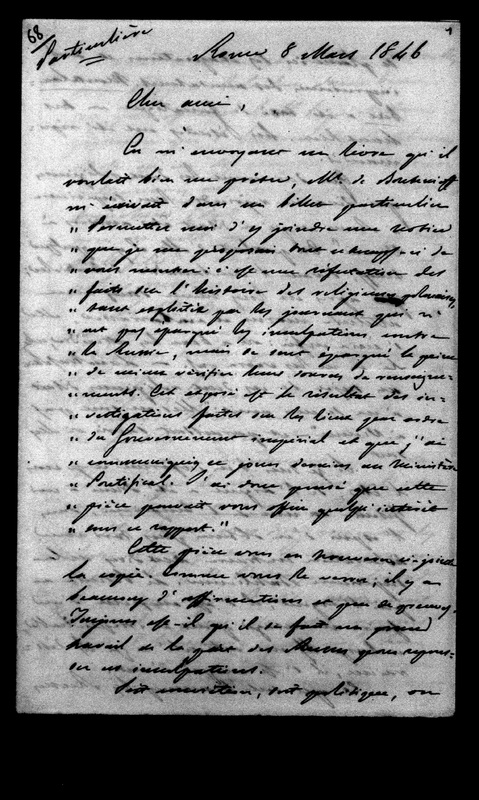 68
Particulière
1
Rome 8 Mars 1846
Cher ami,
En m'envoyant un livre qu'il
voulait bien me prêter, Mr de Boutenieff
m'écrivait dans un billet particulier
" Permettez moi d'y joindre une notice
" que je me proposais tout
" vous montrer: c'est une réfutation des
" faits sur l'histoire des religieuses polonaises,
" tant exploitée par les journaux qui n'
" ont pas épargné les inculpations contre
" la Russie, mais se sont épargné la peine
" de mieux vérifier leurs sources de renseigne-
" ments. Cet exposé est le résultat des in-
" vestigations faites sur les lieux par ordre
" du Gouvernement impérial et que j'ai
" communiqué ces jours derniers au Ministère
" Pontifical. J'ai donc pensé que cette
" pièce pouvait vous offrir quelqu'intérêt
" sous ce rapport."
Cette pièce vous en trouverez ci-jointe
la copie. Comme vous le verrez, il y a
beaucoup d'affirmations et peu de preuves.
Toujours est-il qu'il se fait un grand
travail de la part des Russes pour repous-
ser ces inculpations.
Soit conviction, soit politique, on